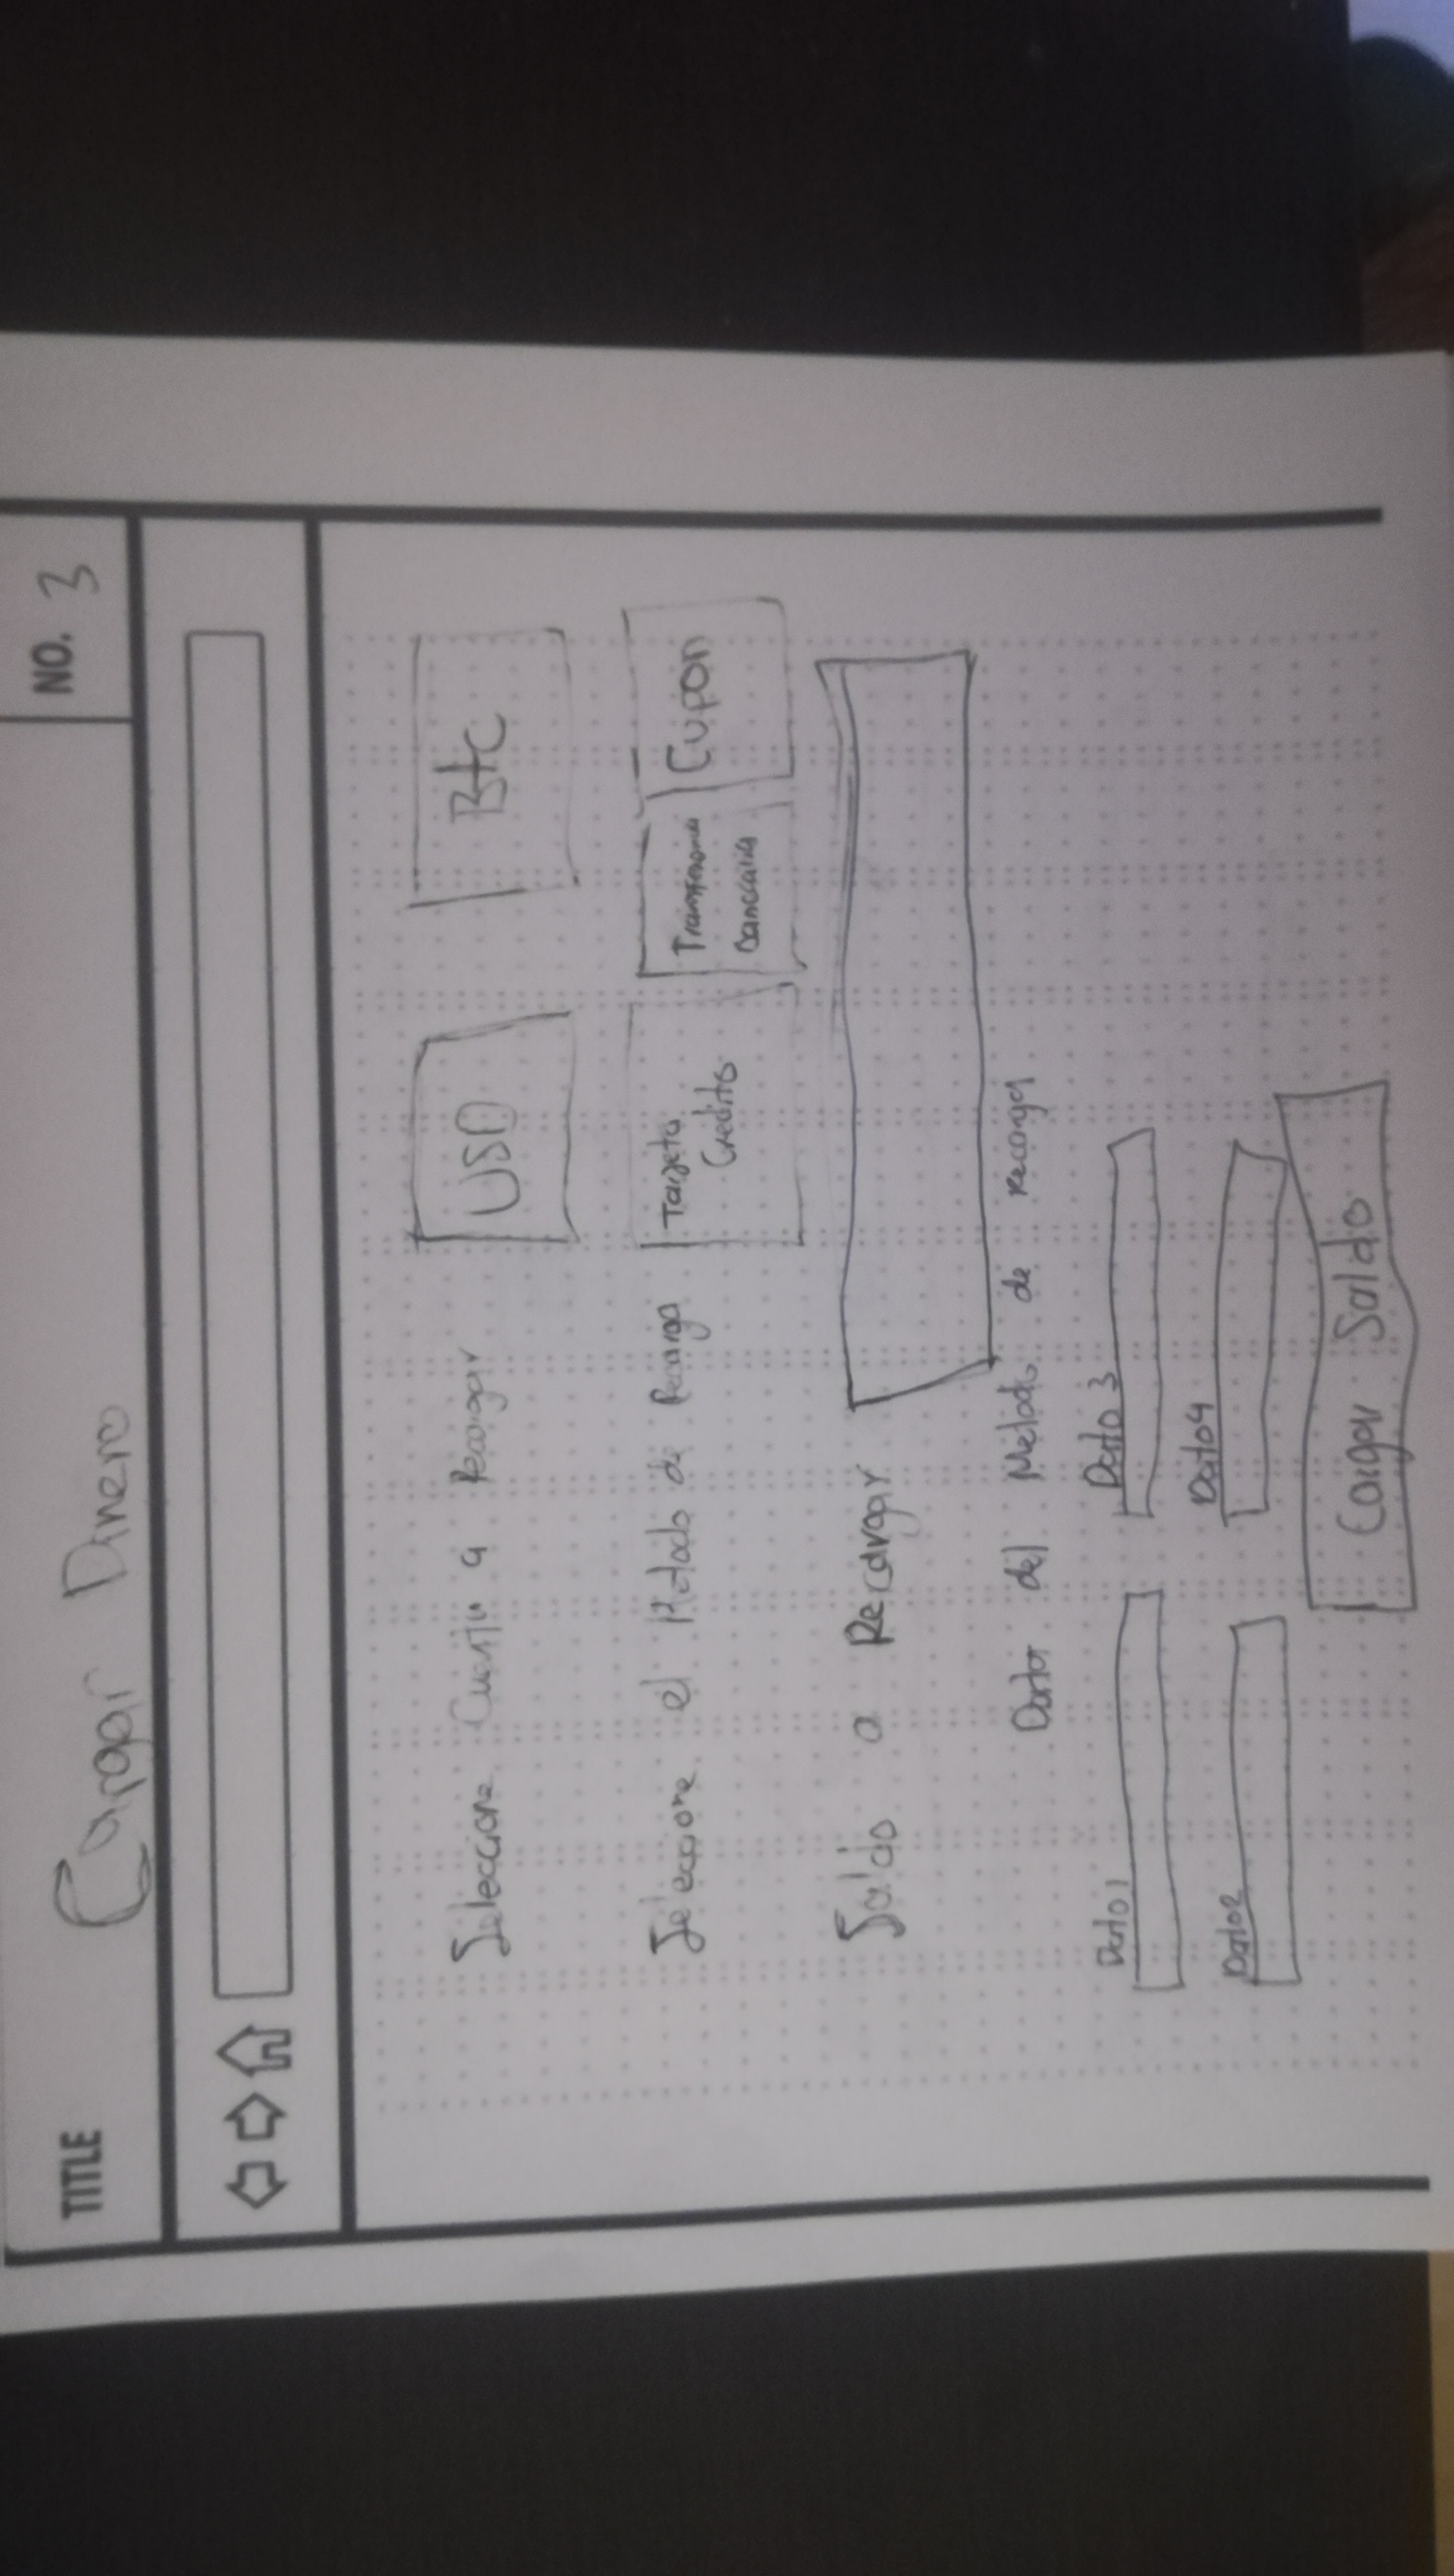 TITLE Cargar Dinero NO. 3
Seleccione Cuenta a Recargar USD Btc
Seleccione el Metodo de Recarga Tarjeta Credito Transferencia bancaria Cupon
Saldo a Recargar
Datos del Metodo de recarga
Dato 1 Dato 3
Dato 2 Dato 4
Cargar Saldo